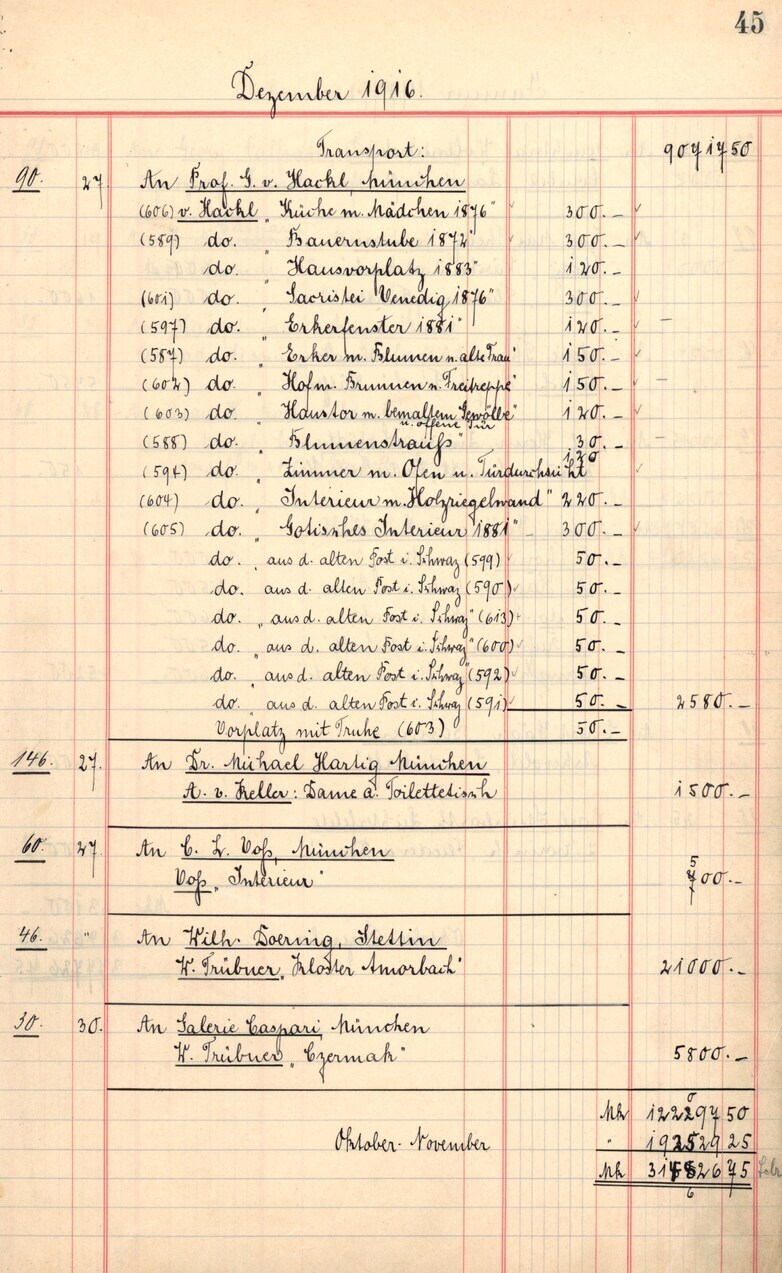 45
Dezember 1916.
Transport: 90717 50
90. 27 An Prof. G. v. Hackl, München
(606) v. Hackl „Küche m. Mädchen 1876" 300.–
(589) do. „Bauernstube 1872" 300.–
do. „Hausvorplatz 1883" 120.–
(601) do. „Sacristei Venedig 1876" 300.–
(597) do. „Erkerfenster 1881" 120.–
(587) do. „Erker m. Blumen u. alte Frau" 150.–
(602) do. „Hof m. Brunnen u. Freitreppe" 150.–
(603) do. „Haustor m. bemaltem Gewölbe" 120.–
u. offene Tür
(588) do. „Blumenstrauß" 30.–
(594) do. „Zimmer m. Ofen u. Türdurchsicht 120
(604) do. „Interieur m. Holzriegelwand" 220.–
(605) do. „Gotisches Interieur 1881" 300.–
do. „aus d. alten Post i. Schwaz (599) 50.–
do. „aus d. alten Post i. Schwaz (590) 50.–
do. „aus d. alten Post i. Schwaz" (613) 50.–
do. „aus d. alten Post i. Schwaz" (600) 50.–
do. „aus d. alten Post i. Schwaz" (592) 50.–
do. „aus d. alten Post i. Schwaz (591) 50.– 2580.–
Vorplatz mit Truhe (603) 50.–
146. 27. An Dr. Michael Hartig München
A. v. Keller: Dame a. Toilettetisch 1500.–
60. 27 An C. L. Voß, München
Voß „Interieur" 500.–
46. " An Wilh. Doering, Stettin
W. Trübner „Kloster Amorbach" 21000.–
30. 30. An Galerie Caspari, München
W. Trübner „Czermak" 5800.–
Mk 122097 50
Oktober-November " 192529 25
Mk 314626 75